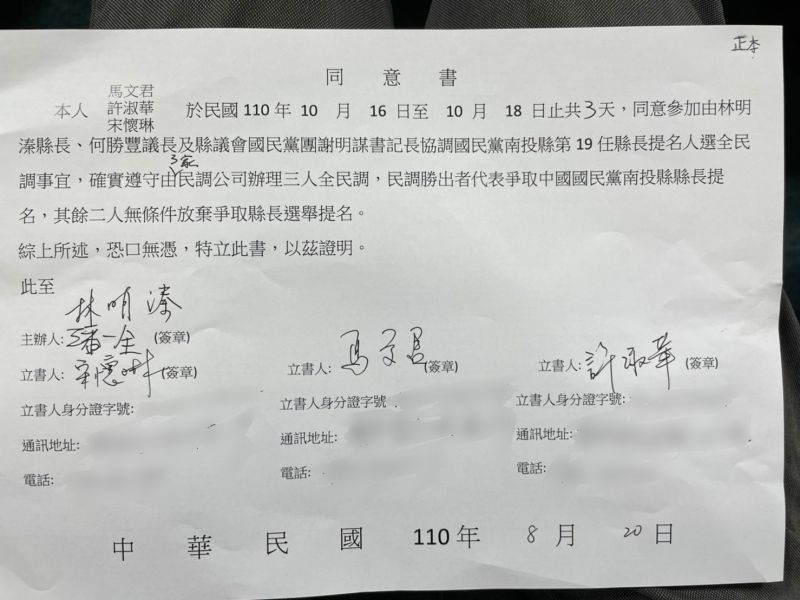 正本
同意書
馬文君
本人 許淑華 於民國 110 年 10 月 16 日至 10 月 18 日止共3天，同意參加由林明
宋懷琳
溱縣長、何勝豐議長及縣議會國民黨團謝明謀書記長協調國民黨南投縣第 19 任縣長提名人選全民
3家
調事宜，確實遵守由民調公司辦理三人全民調，民調勝出者代表爭取中國國民黨南投縣縣長提
名，其餘二人無條件放棄爭取縣長選舉提名。
綜上所述，恐口無憑，特立此書，以茲證明。
此至
林明溱
主辦人: (簽章)
立書人: 宋懷琳 (簽章) 立書人: 馬文君 (簽章) 立書人: 許淑華 (簽章)
立書人身分證字號: 立書人身分證字號 立書人身分證字號:
通訊地址: 通訊地址: 通訊地址:
電話: 電話: 電話:
中華民國 110 年 8 月 20 日